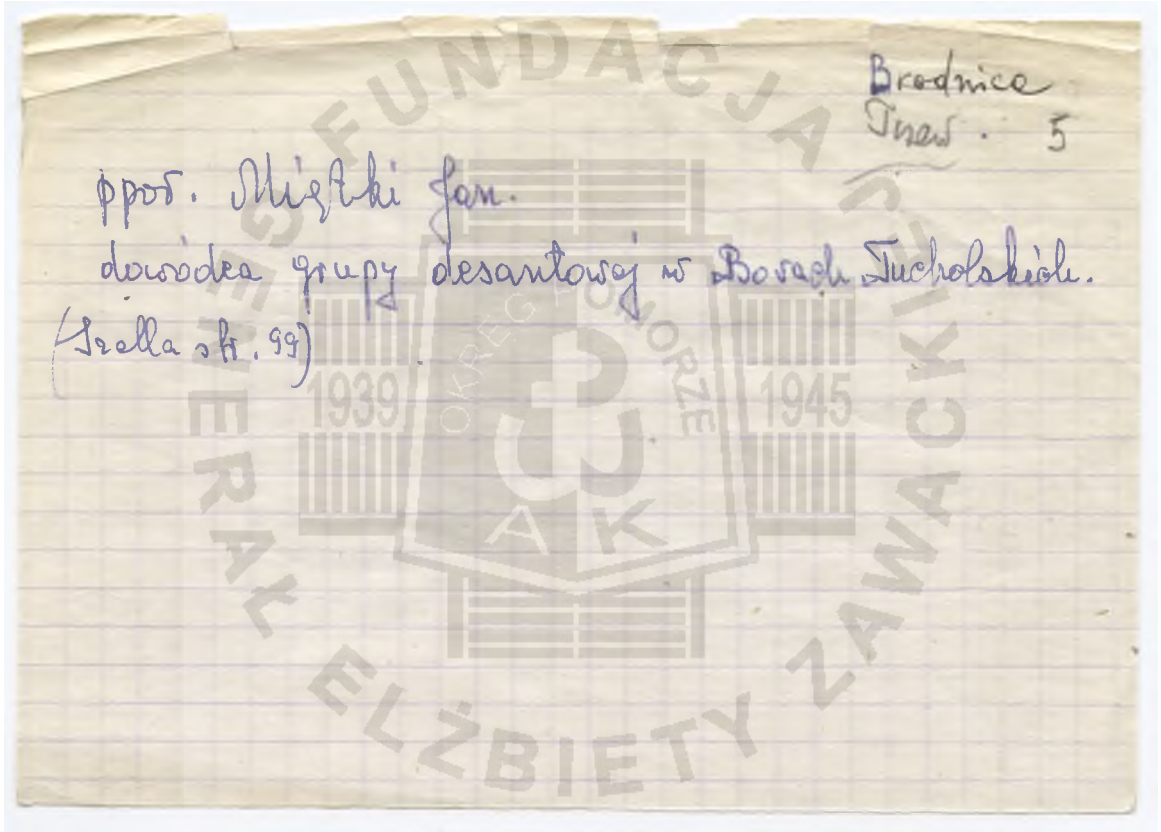 Brodnica
5
ppor. Miętki Jan.
dowódca grupy desantowej w Borach Tucholskich.
(Szalla str. 99)
FUNDACJA GENERAŁ ELŻBIETY ZAWACKIEJ
OKRĘG POMORZE
1939
1945
AK